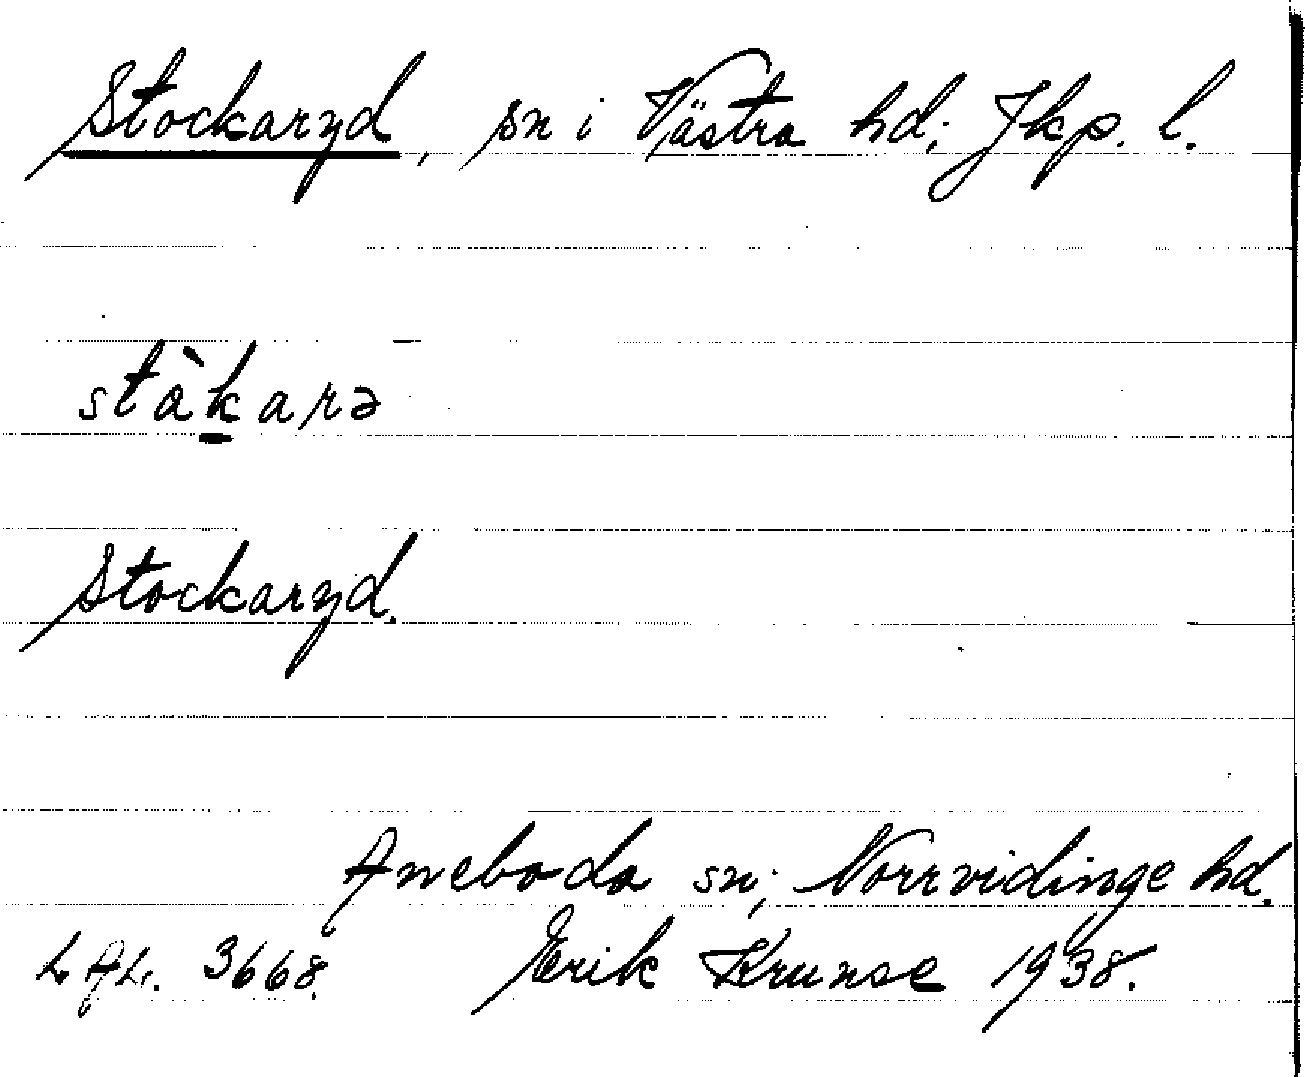 Stockaryd, sn i Västra hd; Jkp. l.
stàk̲arə
Stockaryd.
Aneboda sn; Norrvidinge hd.
LAL. 3668. Erik Krunse 1938.